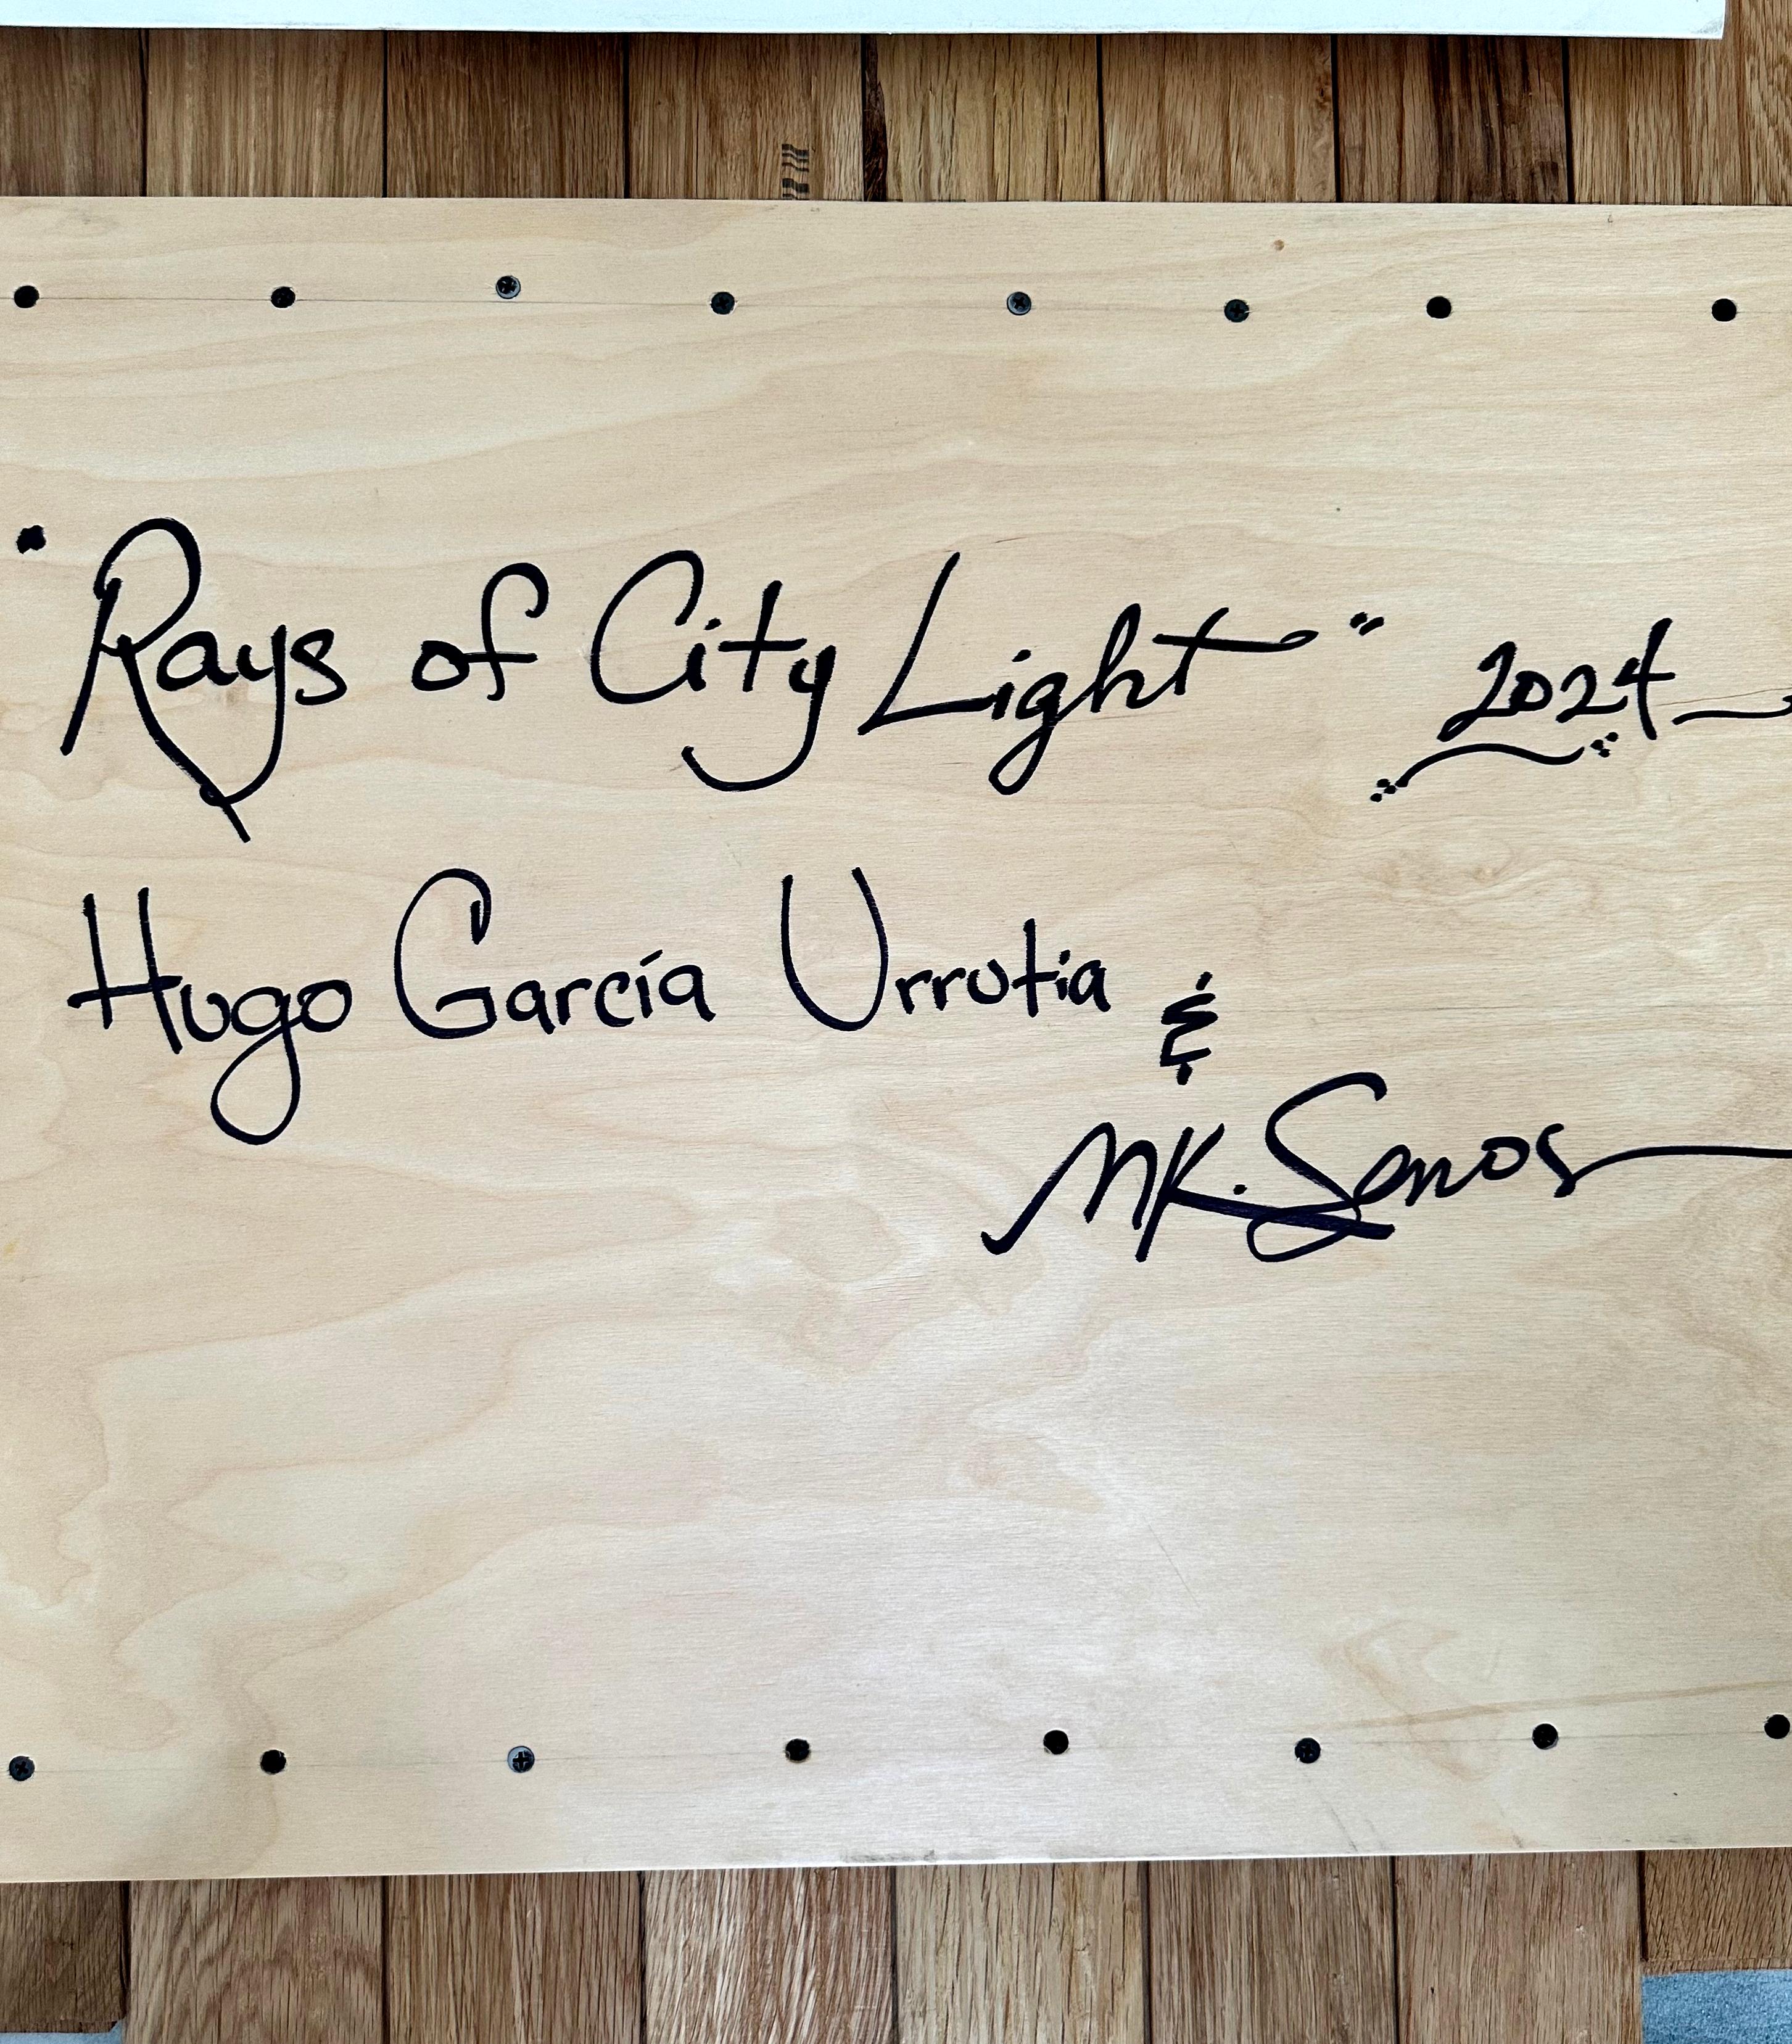 "Rays of City Light" 2024
Hugo García Urrutia &
MK. Semos